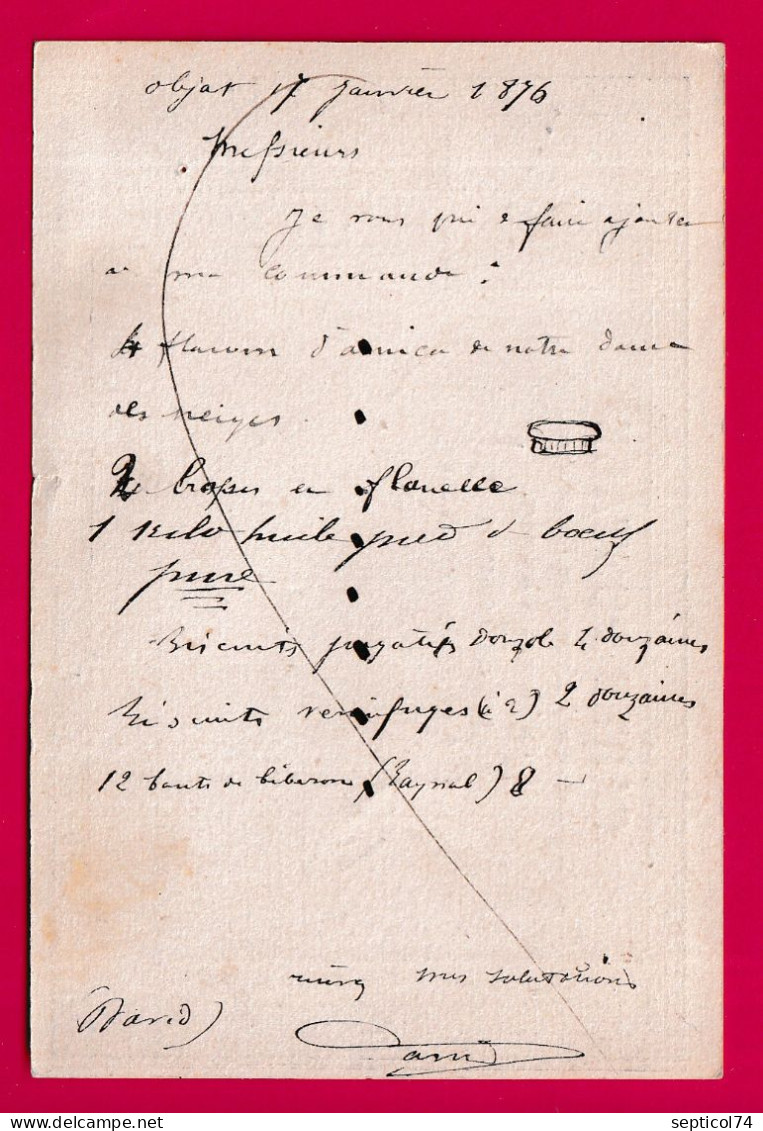 objat 17 janvier 1876
Messieurs
je vous pri e faire ajouter
a ma commande :
4 flacons d'arnica de notre dame
des neiges
2 en flanelle
1 kilo huile pied d boeuf
pure
Biscuits purgatifs 4 douzaines
Biscuits vermifuges (à 2) 2 douzaines
12 bouts de biberon (Raynal) 8 —
mes salutations
(David)
David
septicol74